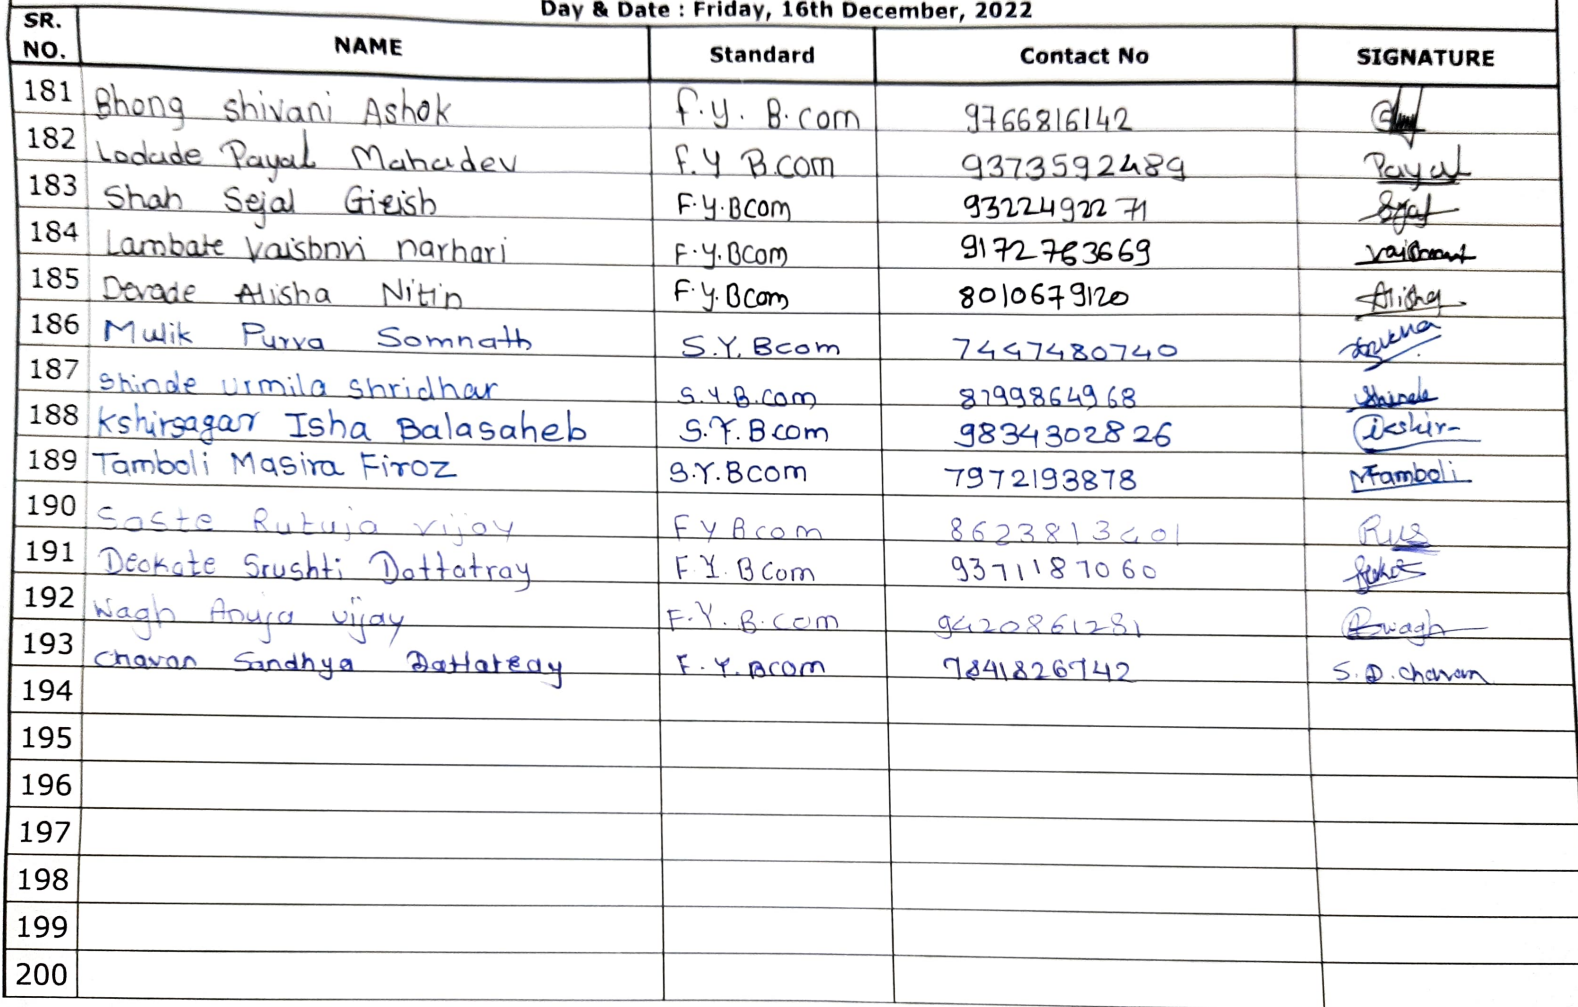 Day & Date : Friday, 16th December, 2022
SR. NO. NAME Standard Contact No SIGNATURE
181 Bhong shivani Ashok f.y. B.com 9766816142
182 Lodade Payal Mahadev f.y B.com 9373592489 Payal
183 Shah Sejal Girish F.y.Bcom 9322492271 Sejal
184 Lambate Vaishnvi narhari F.y.Bcom 9172763669
185 Devade Alisha Nitin F.y.Bcom 8010679120 Alisha
186 Mulik Purva Somnath S.Y. Bcom 7447480740
187 Shinde urmila shridhar S.Y.B.com 8799864968 Shinde
188 Kshirsagar Isha Balasaheb S.Y.Bcom 9834302826 ikshir
189 Tamboli Masira Firoz S.Y.Bcom 7972193878 MTamboli
190 Saste Rutuja vijay F Y Bcom 8623813401
191 Deokate Srushti Dattatray F.Y.BCom 9371187060
192 Wagh Anuja vijay F.Y.B.com 9420861281
193 Chavan Sandhya Dattatray F.Y.Bcom 7841826742 S.D.chavan
194
195
196
197
198
199
200